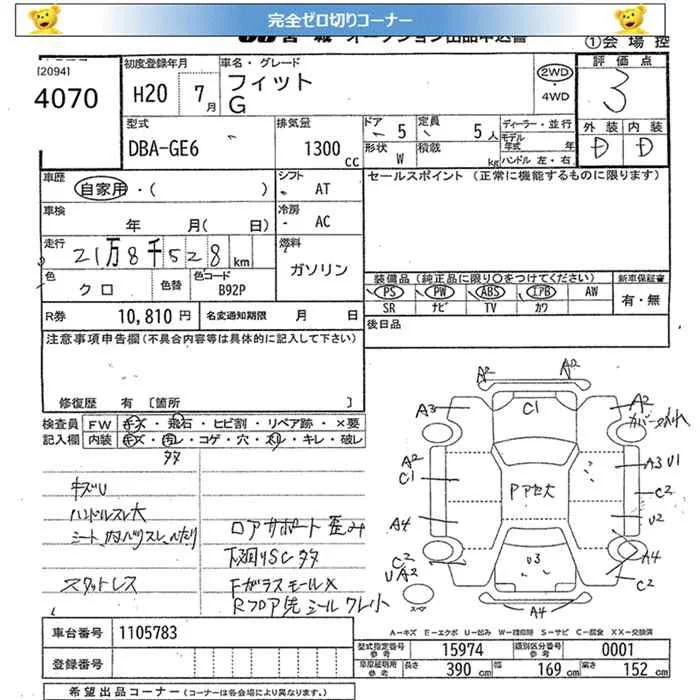 完全ゼロ切りコーナー
オークション出品申込書
①会場控
[2094]
4070
初度登録年月
H20 7月
車名・グレード
フィット
G
2WD
・4WD
評価点
3
外装 内装
D D
型式
DBA-GE6
排気量
1300cc
ドア 5
定員 5人
形状 W
積載 kg
ディーラー・並行
モデル年式 年
ハンドル 左・右
車歴
自家用・( )
シフト
AT
セールスポイント (正常に機能するものに限ります)
車検
年 月( 日)
冷房
AC
走行
21万8千528km
燃料
ガソリン
色
クロ
色替
色コード
B92P
装備品(純正品に限り○をつけてください)
新車保証書
PS PW ABS エアB AW
有・無
SR ナビ TV カワ
R券
10,810円
名変通知期限 月 日
後日品
注意事項申告欄(不具合内容等は具体的に記入して下さい)
修復歴 有 [箇所 ]
検査員
記入欄
FW キズ・飛石・ヒビ割・リペア跡・×要
内装 キズ・汚レ・コゲ・穴・スレ・キレ・破レ
タタ
キズU
ハンドルスレ大
スタットレス
ロアサポート歪み
下廻りSCタタ
FガラスモールX
A2 A2
C1
A3
A2
A2
C1
A3 U1
Pアセ大
C2
A4
U2
C2
U A2
U3
A4
C2
スペア
A4
A-キズ E-エクボ U-凹み W-補修跡 S-サビ C-腐食 XX-交換済
車台番号
1105783
登録番号
型式指定番号
参考
15974
類別区分番号
参考
0001
車庫証明用
参考
長さ 390cm
幅 169cm
高さ 152cm
希望出品コーナー(コーナーは各会場により異なります。)